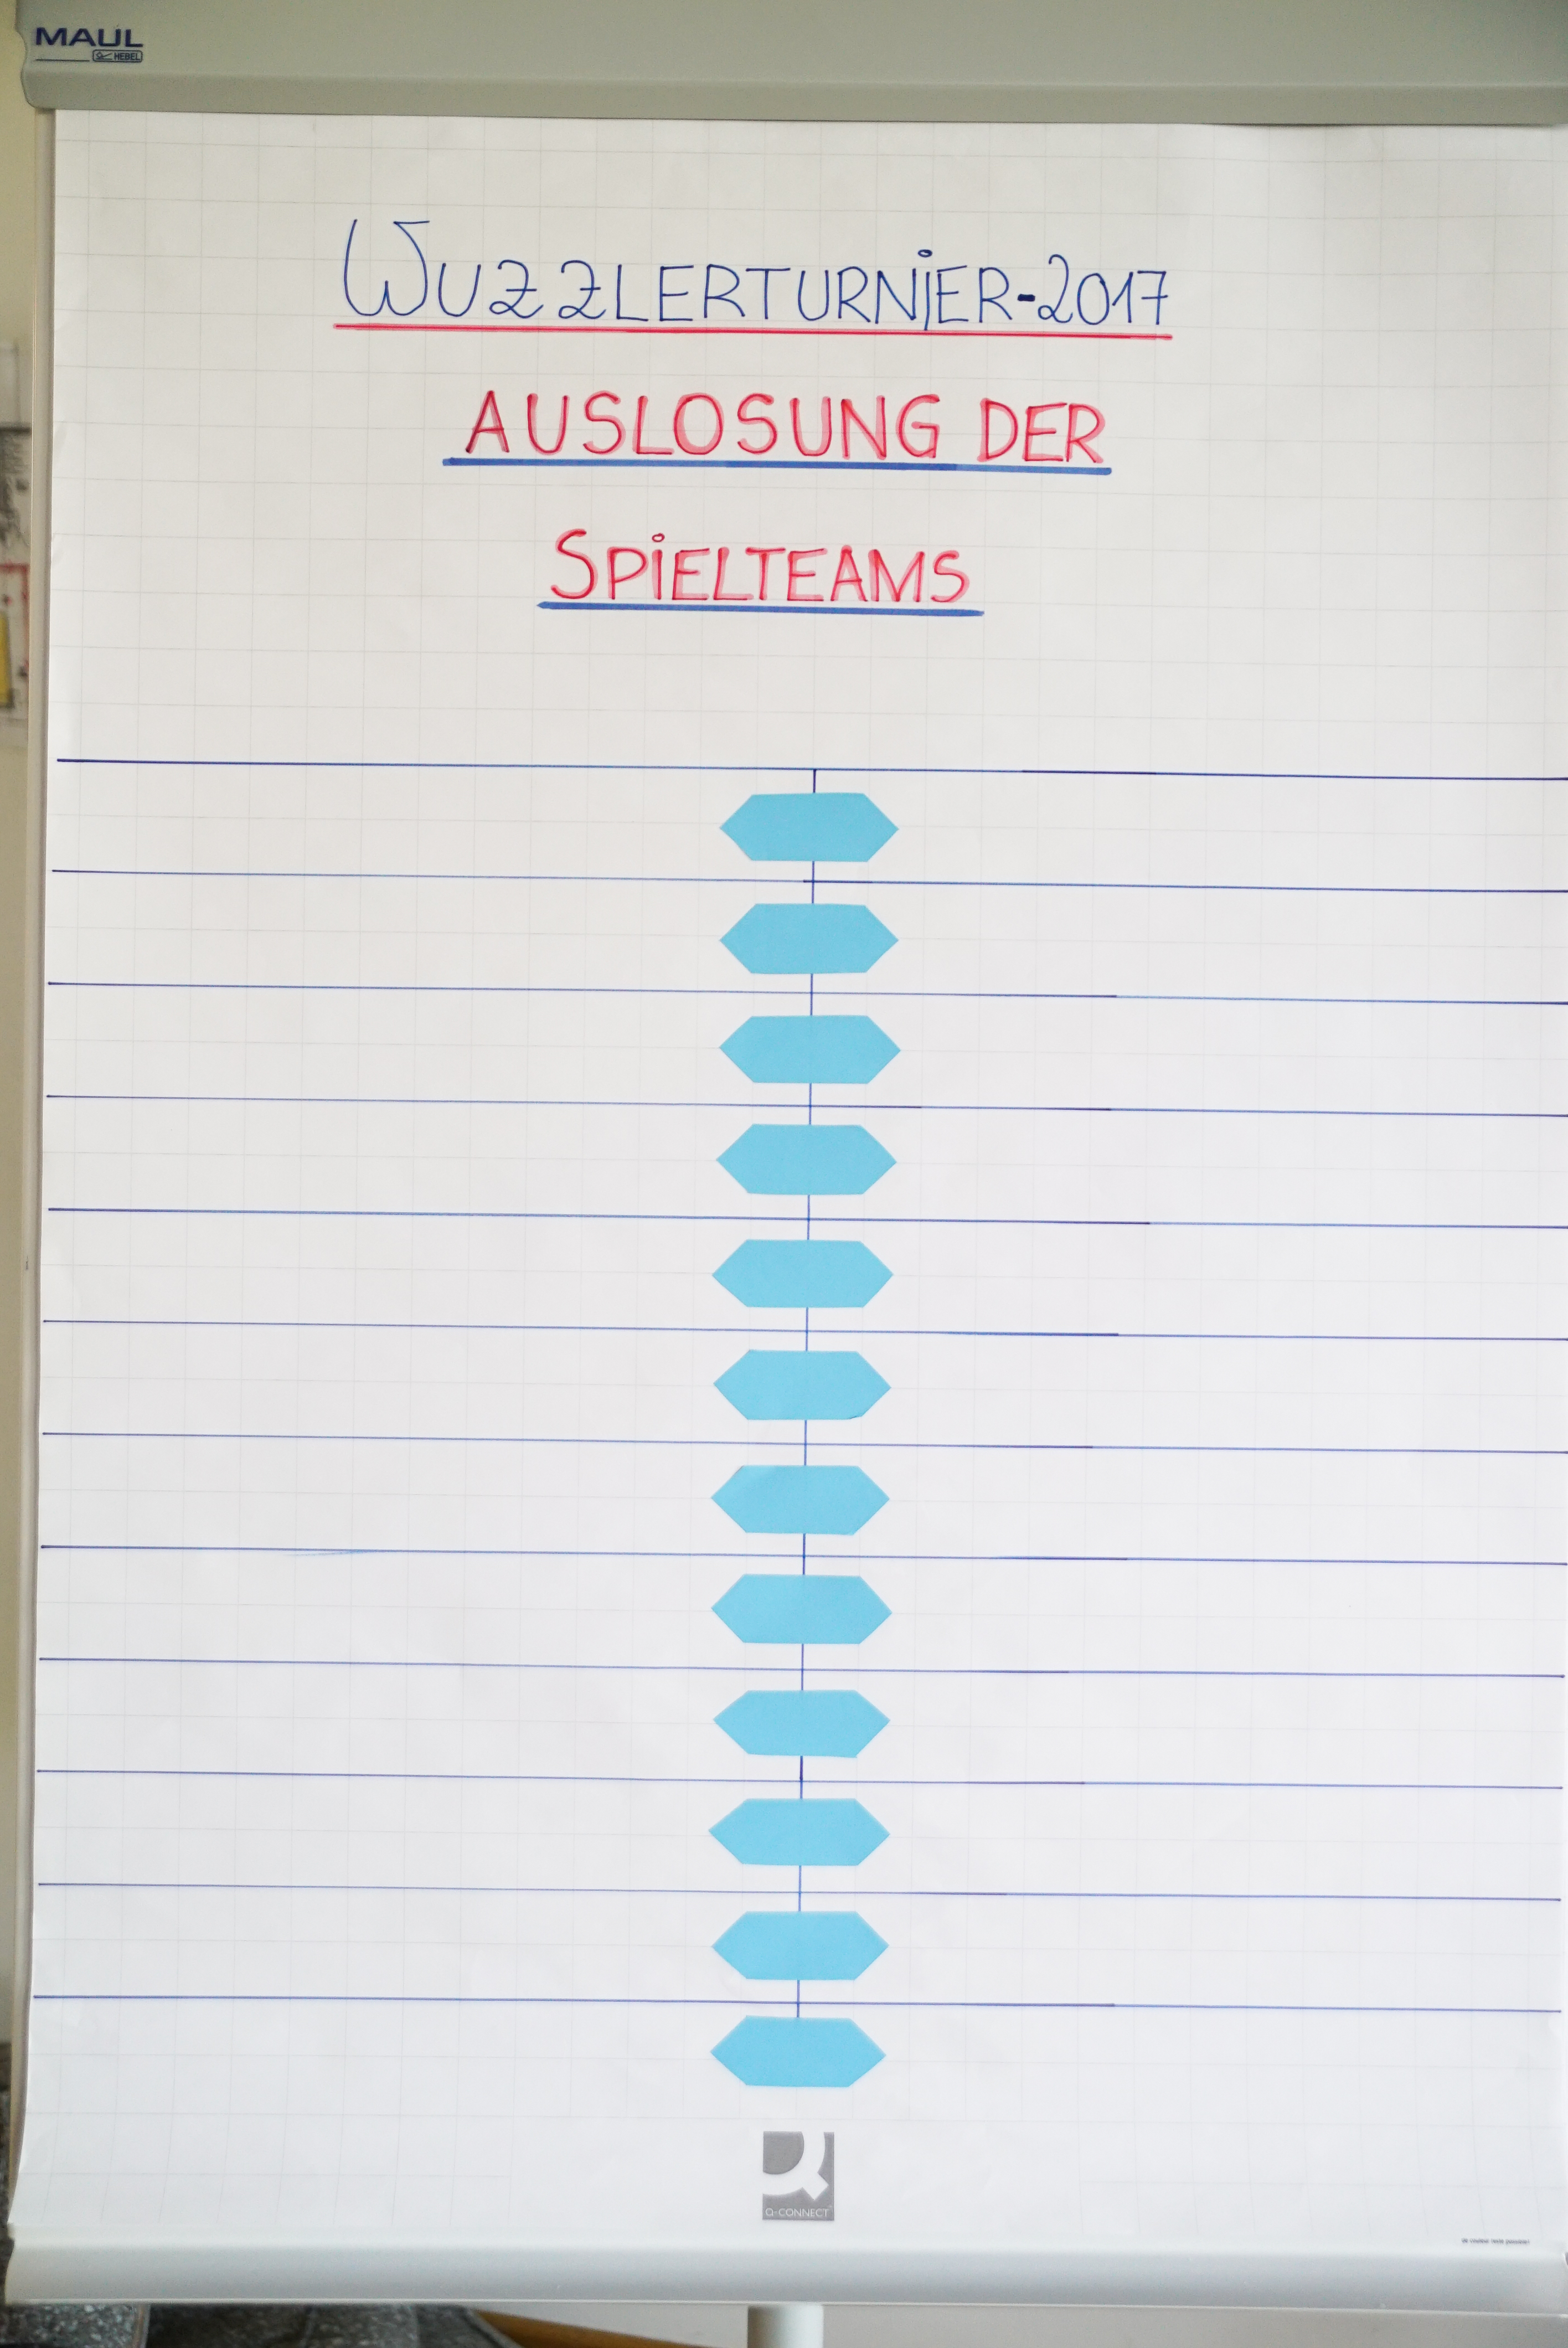 MAUL
HEBEL
WUZZLERTURNiER-2017
AUSLOSUNG DER
SPiELTEAMS
Q-CONNECT